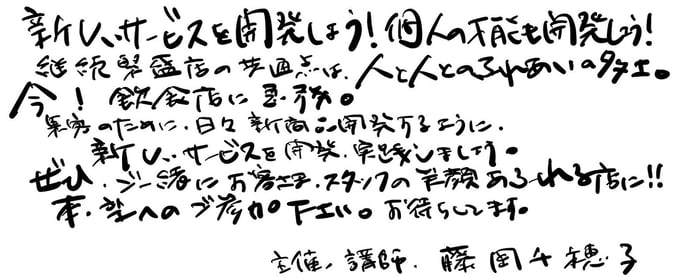 新しいサービスを開発しよう!個人の才能も開発しよう!
継続繁盛店の共通点は、人と人とのふれあいの多さ。
今!飲食店に急務。
果実のために、日々新商品開発するように、
新しいサービスを開発、実践しましょう。
ぜひ、ご一緒にお客さま、スタッフの笑顔あふれる店に!!
本・塾へのご参加下さい。お待ちしてます。
主催、講師、藤岡千穂子